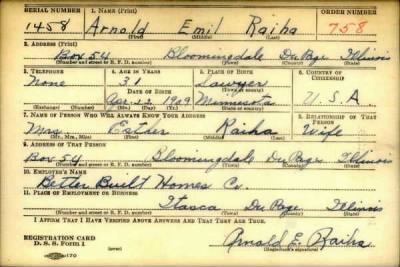 SERIAL NUMBER 1. NAME (Print) ORDER NUMBER
1458 Arnold Emil Raiha 758
(First) (Middle) (Last)
2. ADDRESS (Print)
Box 54 Bloomingdale Du Page Illinois
(Number and street or R. F. D. number) (Town) (County) (State)
3. TELEPHONE 4. AGE IN YEARS 5. PLACE OF BIRTH 6. COUNTRY OF CITIZENSHIP
None 31 Sawyer
DATE OF BIRTH
Apr. 22 1909 Minnesota U.S.A.
(Exchange) (Number) (Mo.) (Day) (Yr.) (State or country)
7. NAME OF PERSON WHO WILL ALWAYS KNOW YOUR ADDRESS 8. RELATIONSHIP OF THAT PERSON
Mrs. Esther Raiha Wife
(Mr., Mrs., Miss) (First) (Middle) (Last)
9. ADDRESS OF THAT PERSON
Box 54 Bloomingdale Du Page Illinois
(Number and street or R. F. D. number) (Town) (County) (State)
10. EMPLOYER'S NAME
Better Built Homes Co.
11. PLACE OF EMPLOYMENT OR BUSINESS
Itasca Du Page Illinois
(Number and street or R. F. D. number) (Town) (County) (State)
I AFFIRM THAT I HAVE VERIFIED ABOVE ANSWERS AND THAT THEY ARE TRUE.
REGISTRATION CARD
D. S. S. Form 1 Arnold E. Raiha
(Registrant's signature)